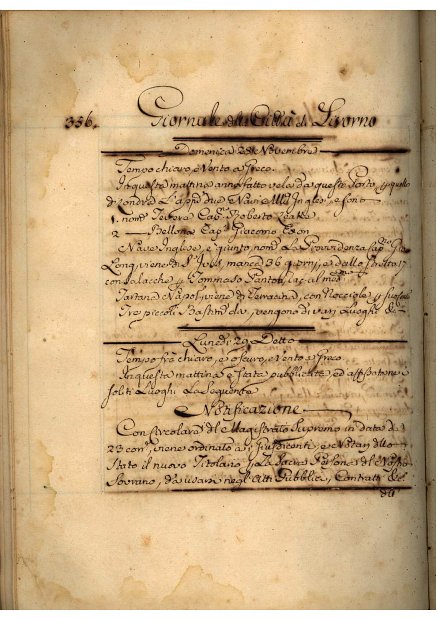 356. Giornale della Città di Livorno
Domenica 28 Novembre
Tempo chiaro, e Vento a Greco.
In questa mattina anno fatto vela da questo Porto, p quello
di Londra l'app.e due Navi Inglesi, e sono
1. nom.
2 — Bellona Cap. Giacomo
Nave Inglese, è giunto nom. La Providenza Cap.
viene di manca 36 giorni, e dallo Stretto 17
con Salacche, p Tommaso
Tartana Napol. viene di Terracina, con Nocciole, p suo
Tre piccoli Bastim.ti vengono di vari Luoghi &c.
Lunedì 29 Detto
Tempo frà chiaro, e oscuro, e Vento a Greco
In questa mattina è stata pubblicata, ed affissa ne
soliti Luoghi La Seguente
Notificazione
Con Circolare del Magistrato Supremo in data de
23 corr. viene ordinato a Giusdicenti, e Notari dello
Stato il nuovo Titolario p La Sacra Persona del Nostro
Sovrano, da usarsi negl'Atti Pubblici, Contratti &c.